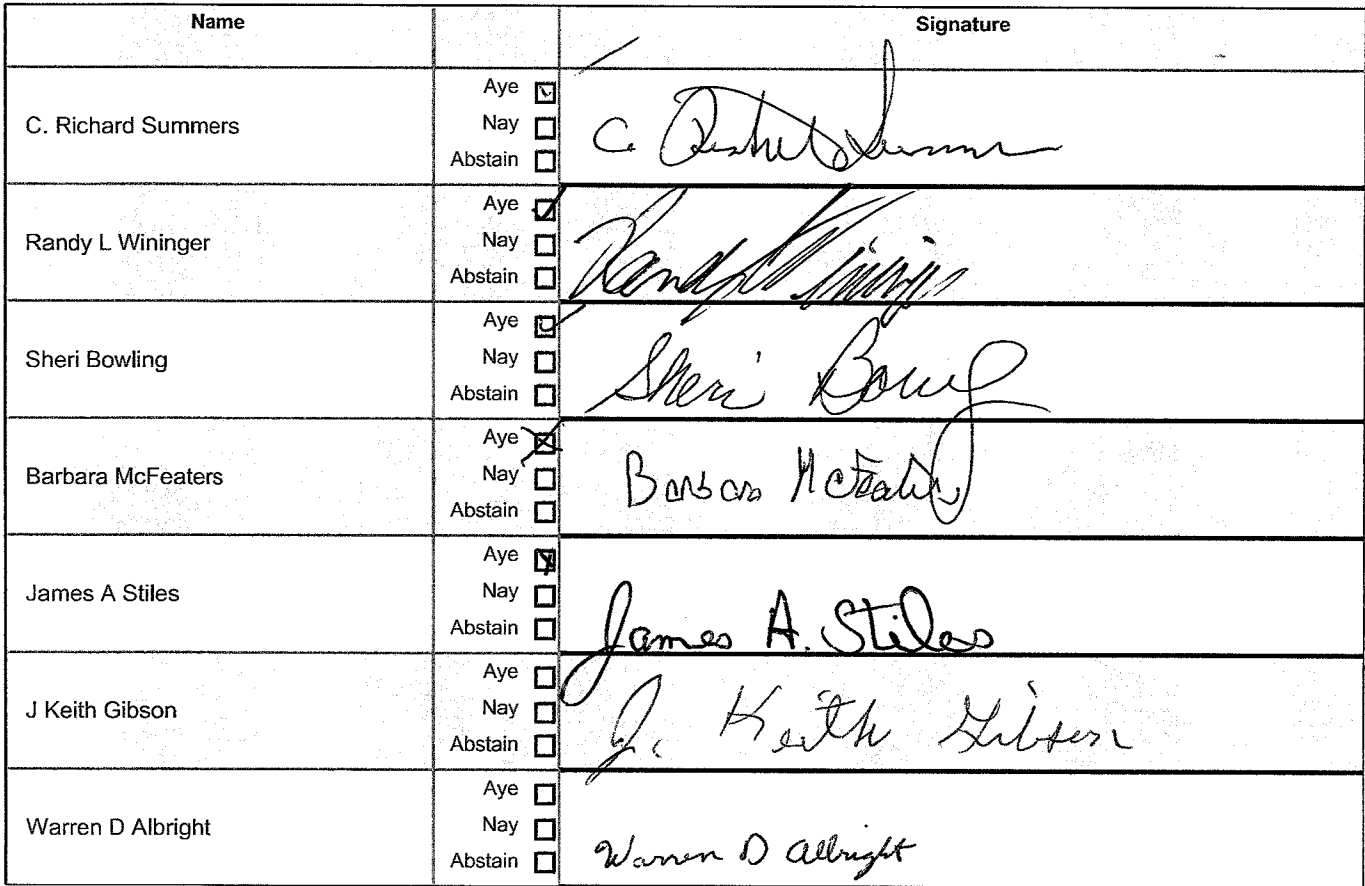 Name Signature
C. Richard Summers
Aye ☑
Nay ☐
Abstain ☐
C. Richard Summers
Randy L Wininger
Aye ☑
Nay ☐
Abstain ☐
Randy L Wininger
Sheri Bowling
Aye ☑
Nay ☐
Abstain ☐
Sheri Bowling
Barbara McFeaters
Aye ☒
Nay ☐
Abstain ☐
Barbara McFeaters
James A Stiles
Aye ☒
Nay ☐
Abstain ☐
James A. Stiles
J Keith Gibson
Aye ☐
Nay ☐
Abstain ☐
J. Keith Gibson
Warren D Albright
Aye ☐
Nay ☐
Abstain ☐
Warren D Albright